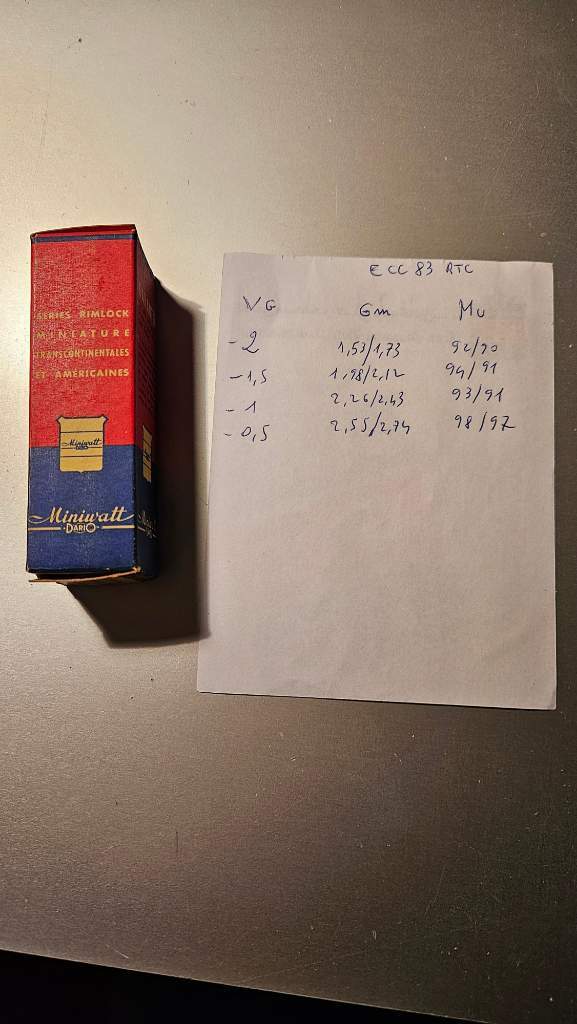 SERIES RIMLOCK
MINIATURE
TRANSCONTINENTALES
ET AMÉRICAINES
Miniwatt
Miniwatt
DARIO
ECC 83 RTC
VG Gm Mu
-2 1,53/1,73 92/90
-1,5 1,98/2,12 94/91
-1 2,26/2,43 93/91
-0,5 2,55/2,74 98/97